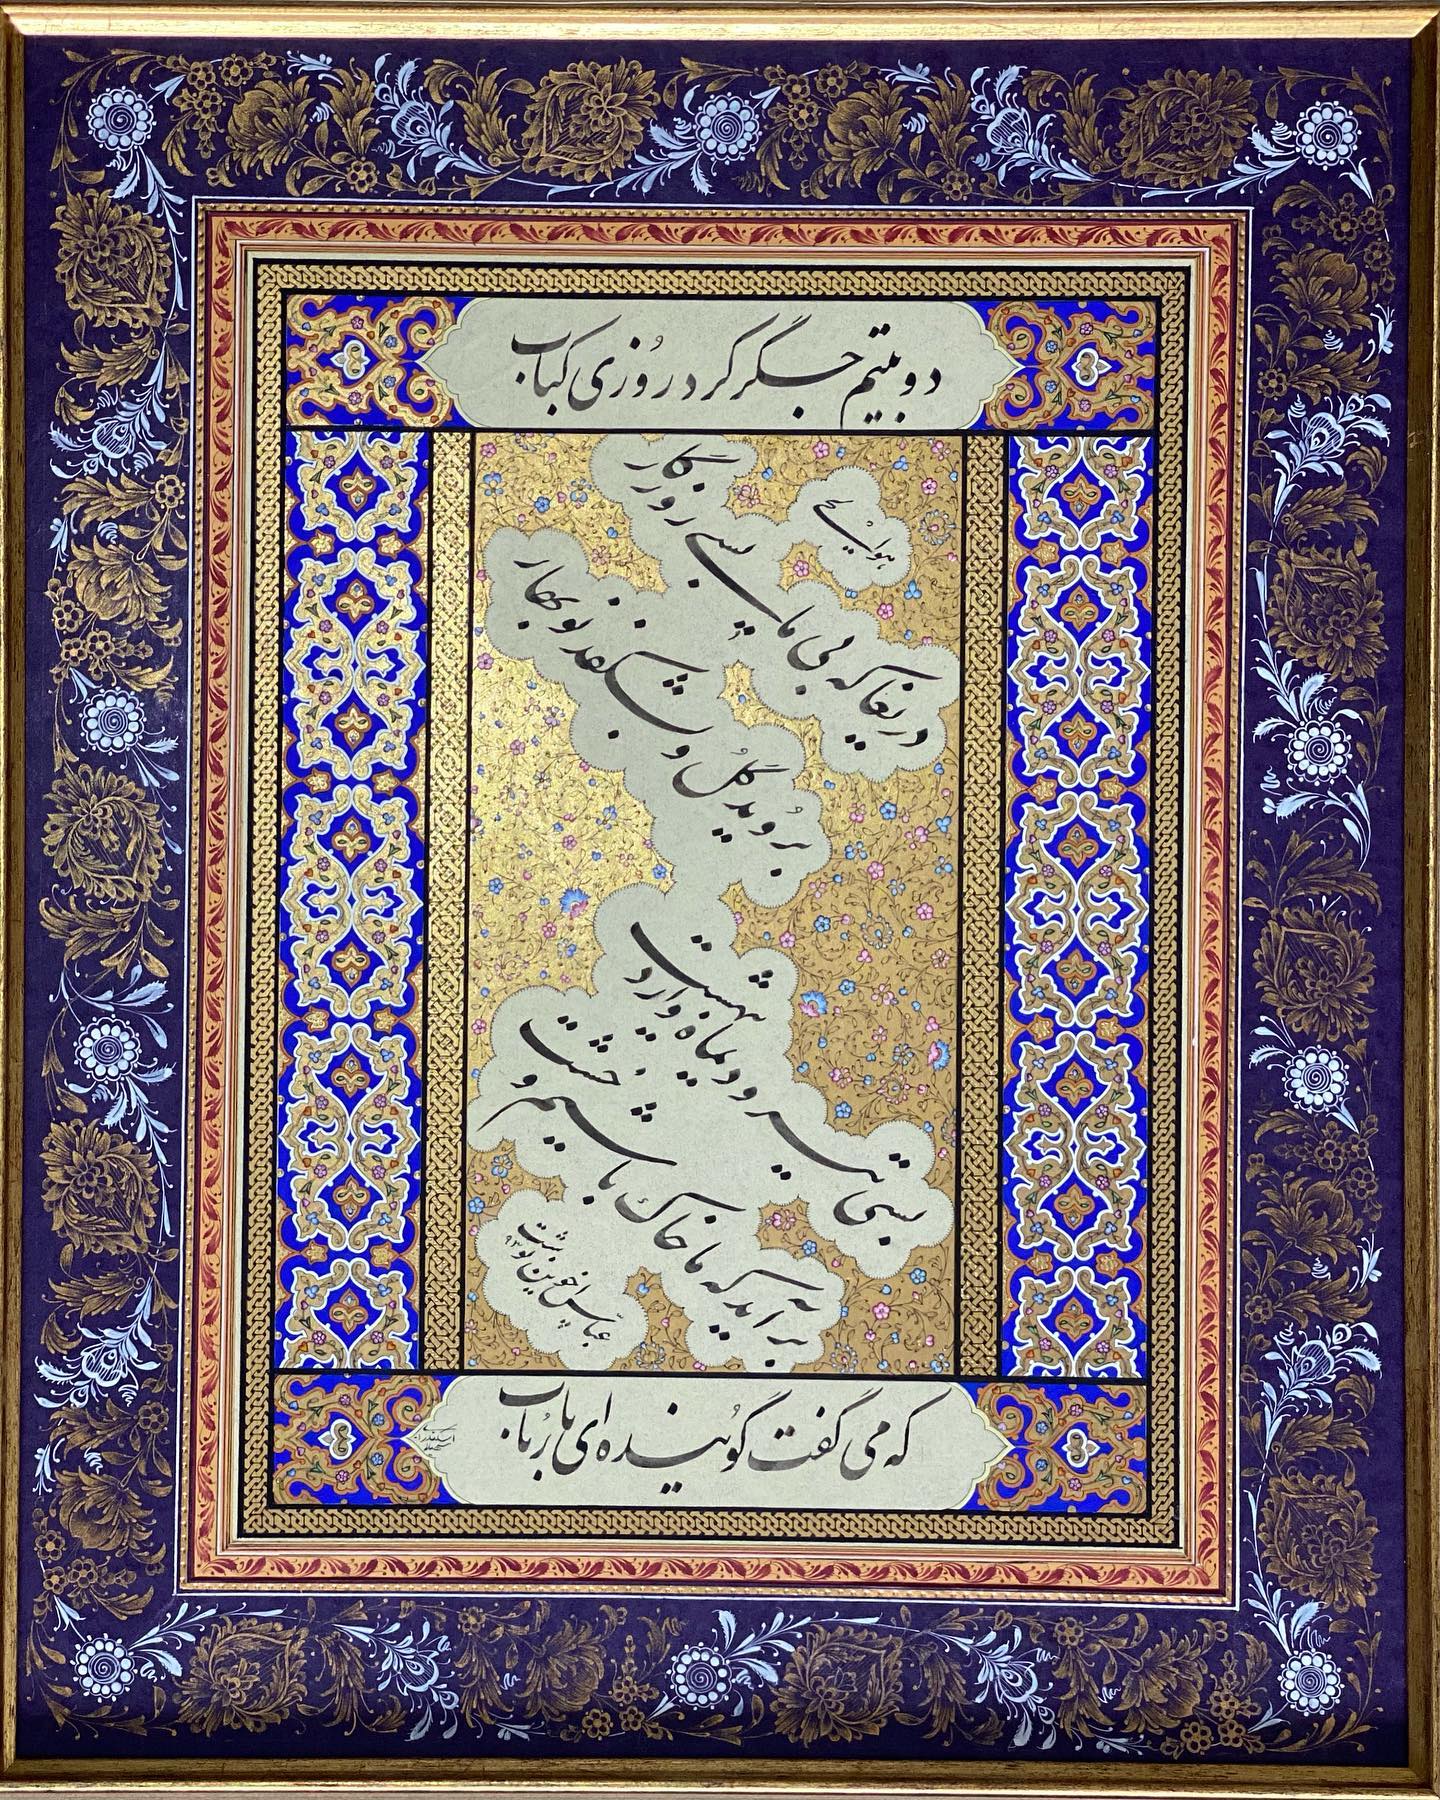 دو بیتم جگر کرد روزی کباب
هوالمسیح
دریغا که بی ما بسی روزگار
بروید گل و بشکفد نوبهار
بسی تیر و دیماه و اردیبهشت
بر آید که ما خاک باشیم و خشت
عباس اخوین نوشت
که می گفت گوینده ای با رباب